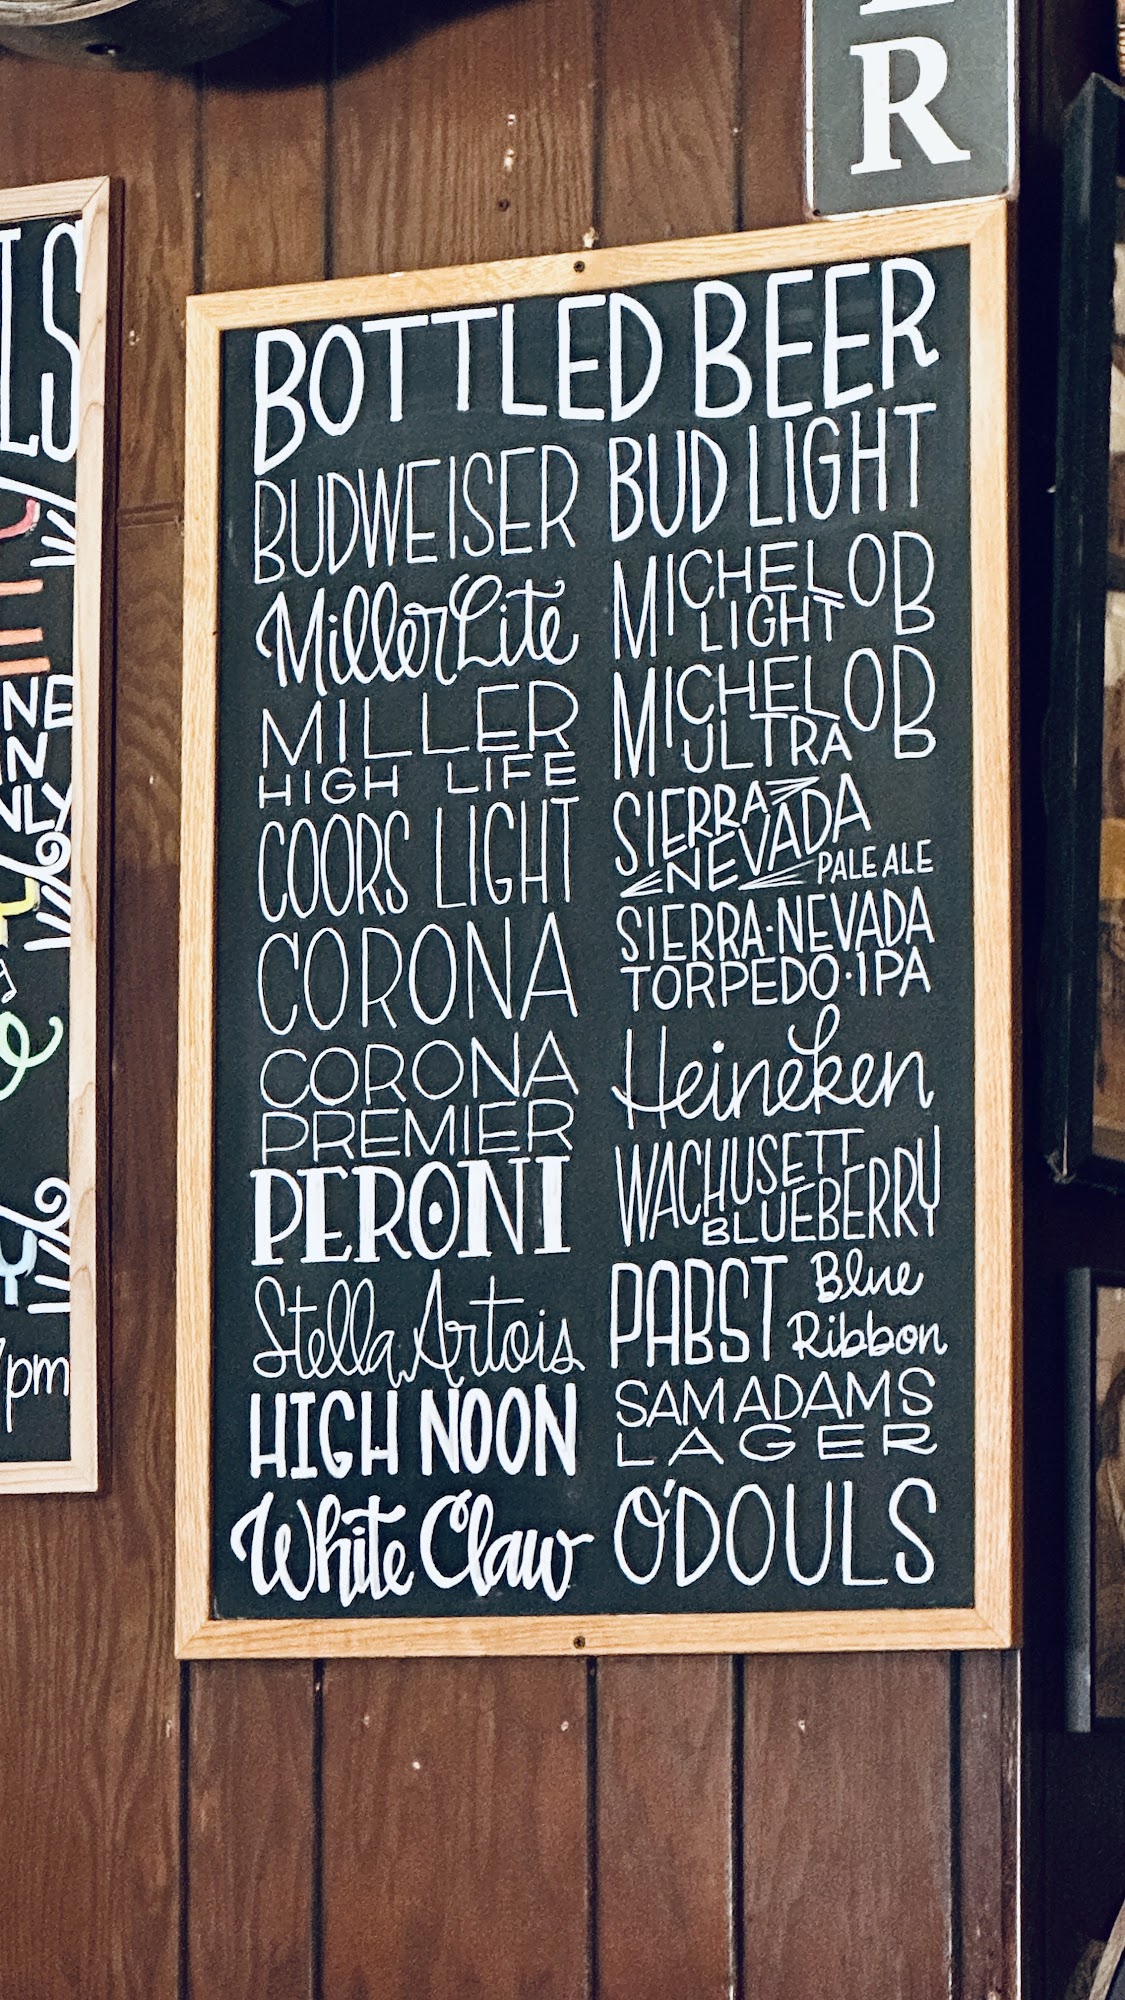 R
LS
NE
NLY
7pm
BOTTLED BEER
BUDWEISER
Miller Lite
MILLER
HIGH LIFE
COORS LIGHT
CORONA
CORONA
PREMIER
PERONI
Stella Artois
HIGH NOON
White Claw
BUD LIGHT
MICHELOB
LIGHT
MICHELOB
ULTRA
SIERRA
NEVADA
PALE ALE
SIERRA·NEVADA
TORPEDO·IPA
Heineken
WACHUSETT
BLUEBERRY
PABST Blue
Ribbon
SAM ADAMS
LAGER
O'DOULS